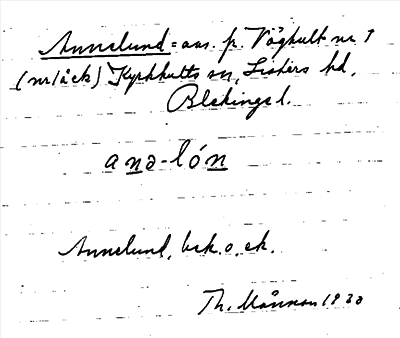 Annelund = avs. fr. Väghult nr 1
(nr/åck) Kyrkhults sn, Listers hd,
Blekinge l.
anə-lón
Annelund, bek. o. ek.
Th. Månsson 1930